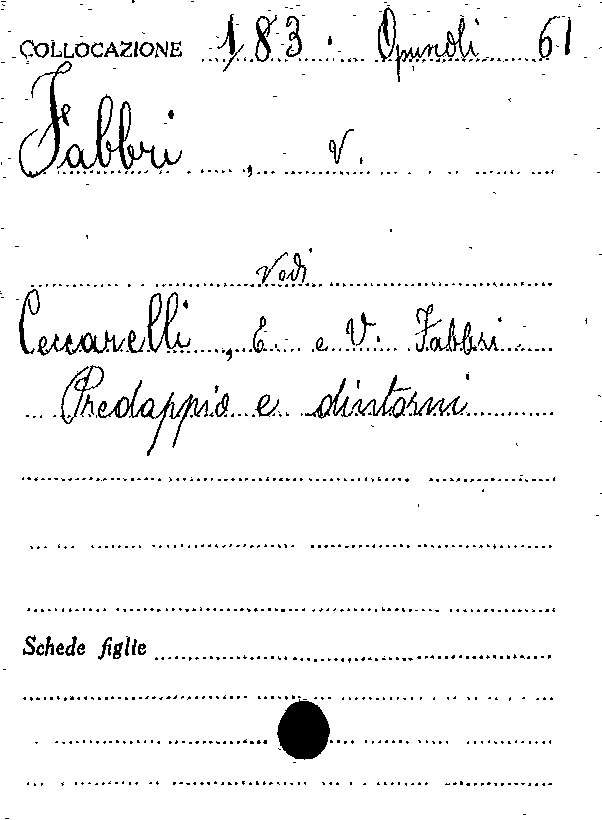 COLLOCAZIONE 183. Opuscoli 61
Fabbri, V.
Vedi
Ceccarelli, E. e V. Fabbri
Predappio e dintorni
Schede figlie